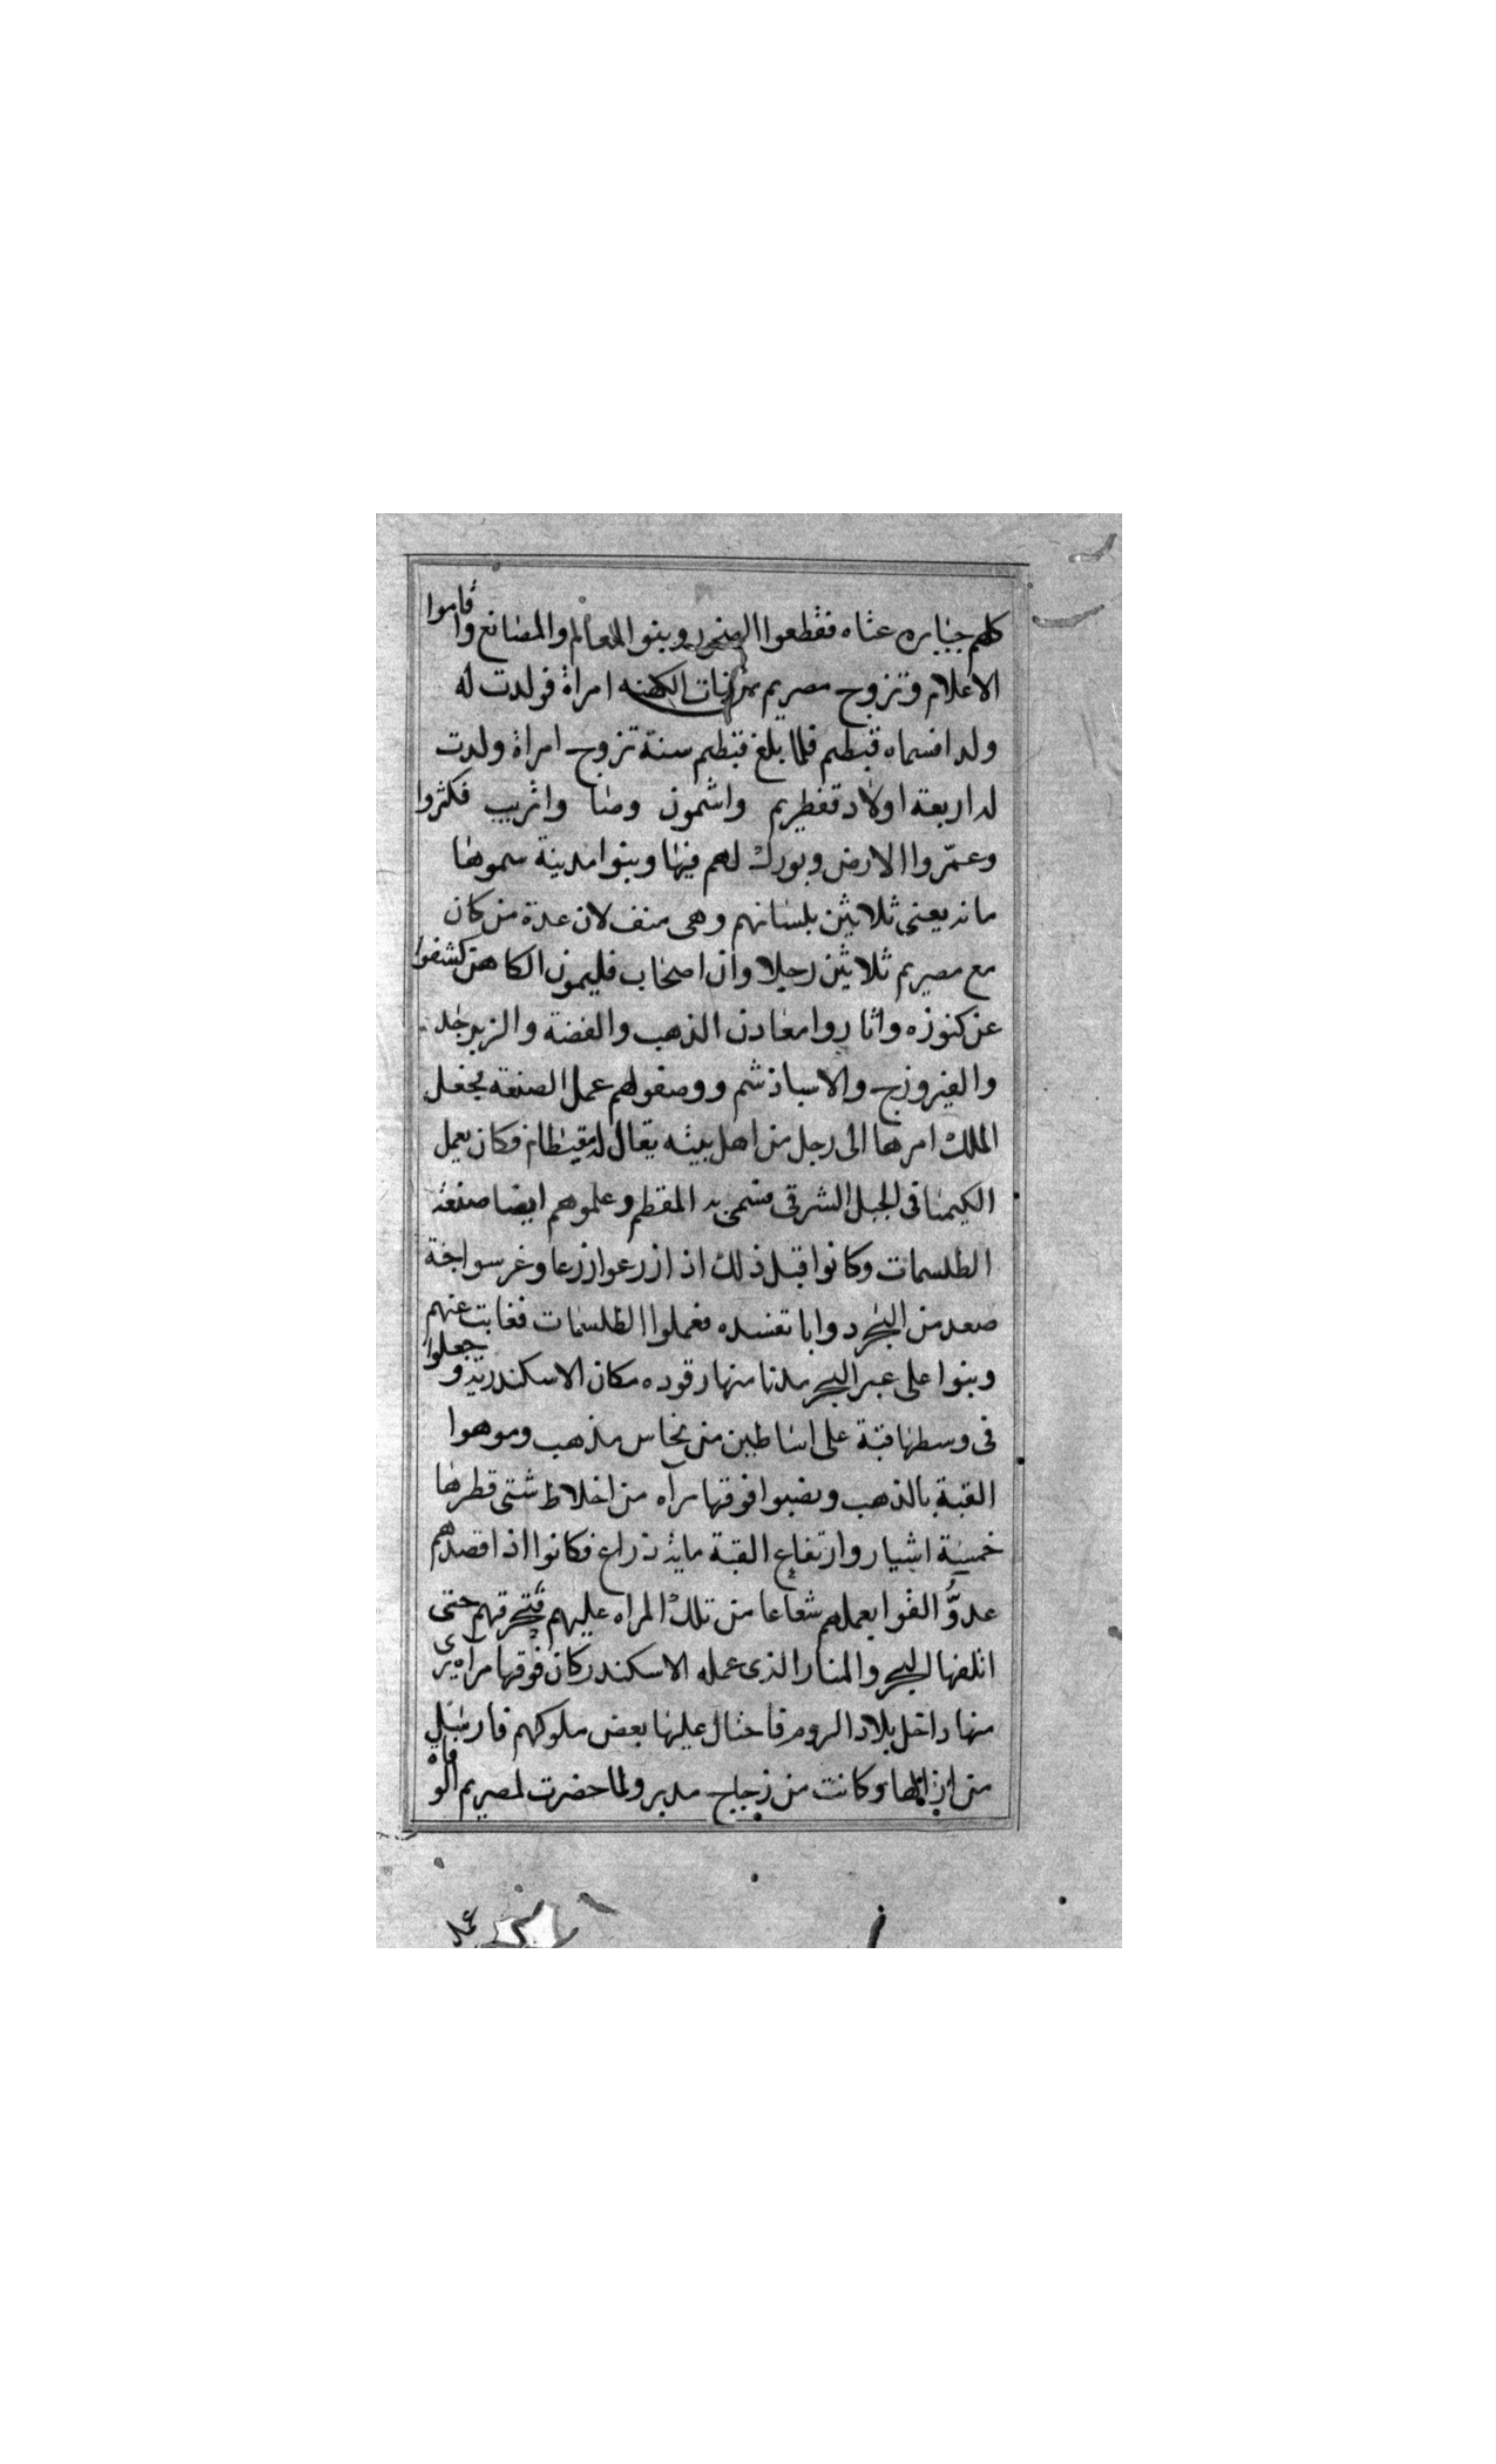 كلهم جبابره عتاه فقطعوا الصخور وبنوا المعالم والمصانع واقاموا
الاعلام وتزوج مصريم من بنات الكهنه امراة فولدت له
ولدا فسماه قبطيم فلما بلغ قبطيم سنة تزوج امراة ولدت
له اربعة اولاد قفطريم واشمون وصا واثريب فكثروا
وعمّروا الارض وبورك لهم فيها وبنوا مدينة سموها
مانه يعنى ثلاثين بلسانهم وهى منف لان عدة من كان
مع مصريم ثلاثين رجلا وان اصحاب فليمون الكاهن كشفوا
عن كنوزه واثاروا معادن الذهب والفضة والزبرجد
والفيروزج والاسباذشم ووصفوا لهم عمل الصنعة فجعل
الملك امرها الى رجل من اهل بيته يقال له مقيطام فكان يعمل
الكيميا فى الجبل الشرقى فسمى به المقطم وعلموهم ايضا صنعة
الطلسمات وكانوا قبل ذلك اذا زرعوا زرعا وغرسوا جنة
صعد من البحر دوابا تفسده فعملوا الطلسمات فغابت عنهم
وبنوا على عبر البحر مدنا منها رقوده مكان الاسكندرية وجعلوا
فى وسطها قبة على اساطين من نحاس مذهب وموهوا
القبة بالذهب ونصبوا فوقها مراه من اخلاط شتى قطرها
خمسة اشبار وارتفاع القبة ماية ذراع فكانوا اذا قصدهم
عدوُّ القوا بعملهم شعاعا من تلك المراه عليهم فتحرقهم حتى
اتلفها البحر والمنار الذى عمله الاسكندر كان فوقها مراه يرى
منها داخل بلاد الروم فاحتال عليها بعض ملوكهم فارسل
من ازالها وكانت من زجاج مدبر ولما حضرت لمصريم الوفاة